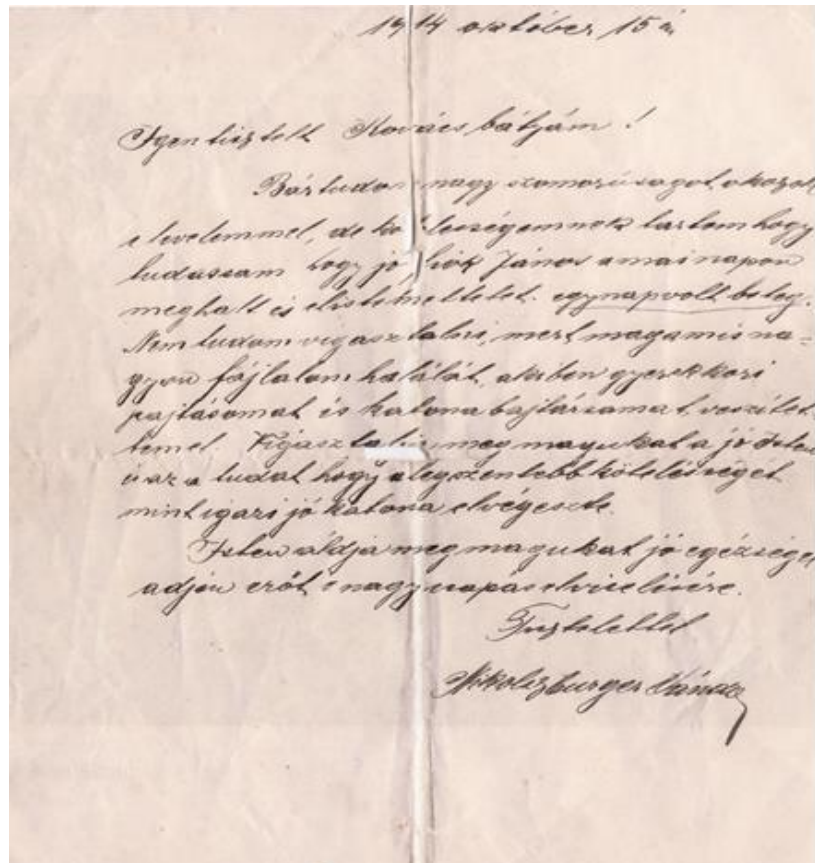 1914 október 15 én
Igen tisztelt Kovács bátyám !
Bár tudom nagy szomorúságot okozok
e levelemmel, de kötelességemnek tartom hogy
tudassam hogy jó fiók János a mai napon
meghalt és eltemettetet. egy nap volt beteg.
Nem tudom vigasztalni, mert magam is na=
gyon fájlalom halálát, akiben gyerekkori
pajtásomat és katona bajtársamat veszítet-
tem el. Vigasztalja meg magukat a jó Isten
és az a tudat hogy a legszentebb kötelességét
mint igazi jó katona elvégezte.
Isten áldja meg magukat jó egészséget
adjon erőt e nagy csapás elviselésére.
Tisztelettel
Nikolszburger